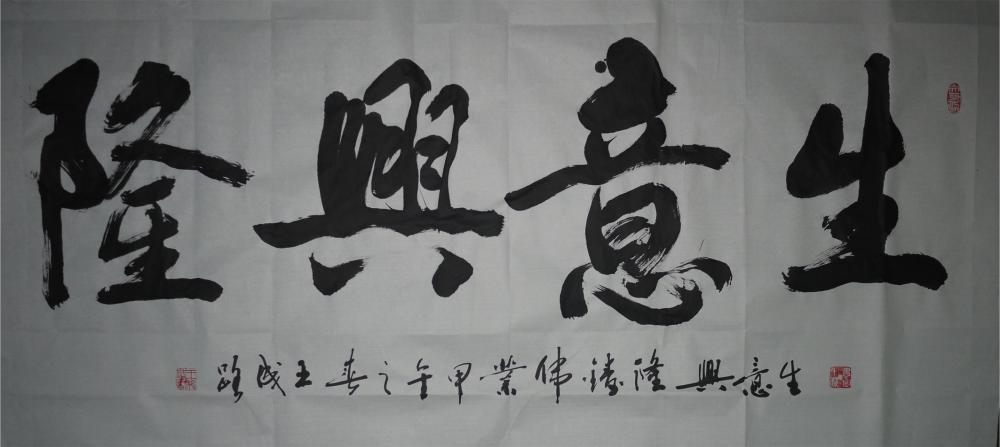 生意興隆
生意興隆鑄偉業甲午之春王成路